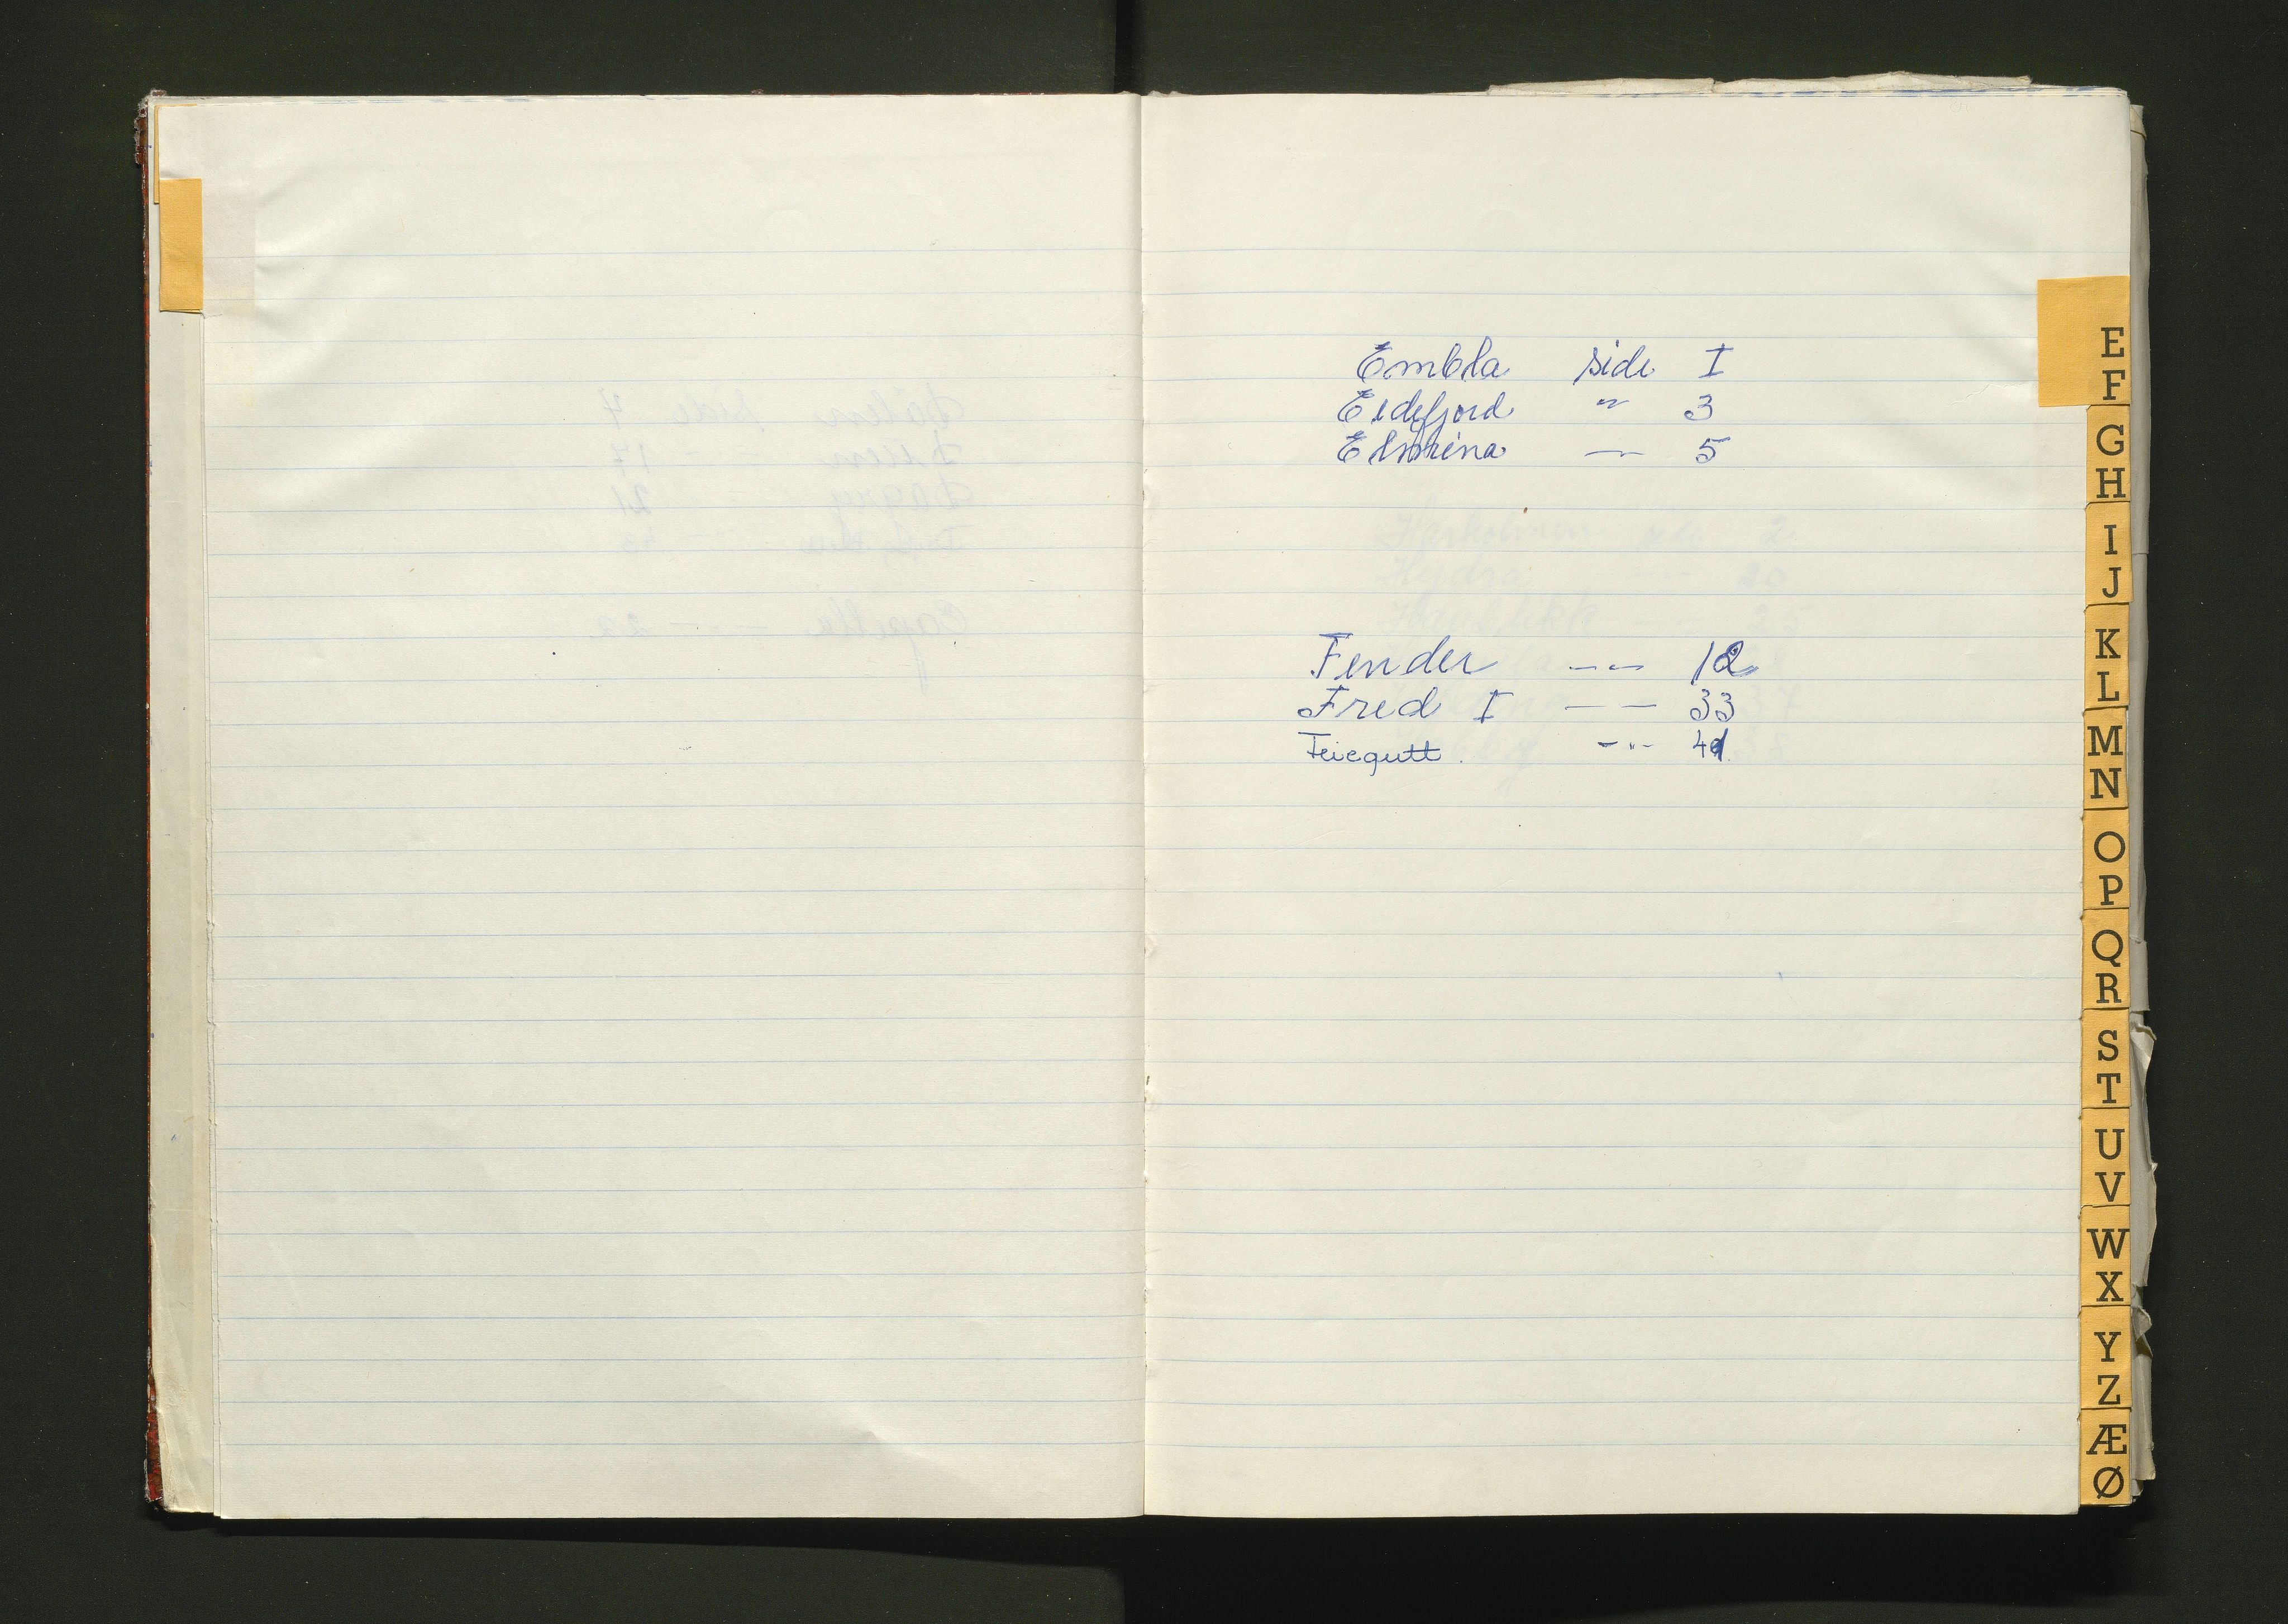 Embla side I
Eidefjord " 3
5
Fender -"- 12
Fred I - - 33
Feiegutt. -"- 41
E
F
G
H
I
J
K
L
M
N
O
P
Q
R
S
T
U
V
W
X
Y
Z
Æ
Ø